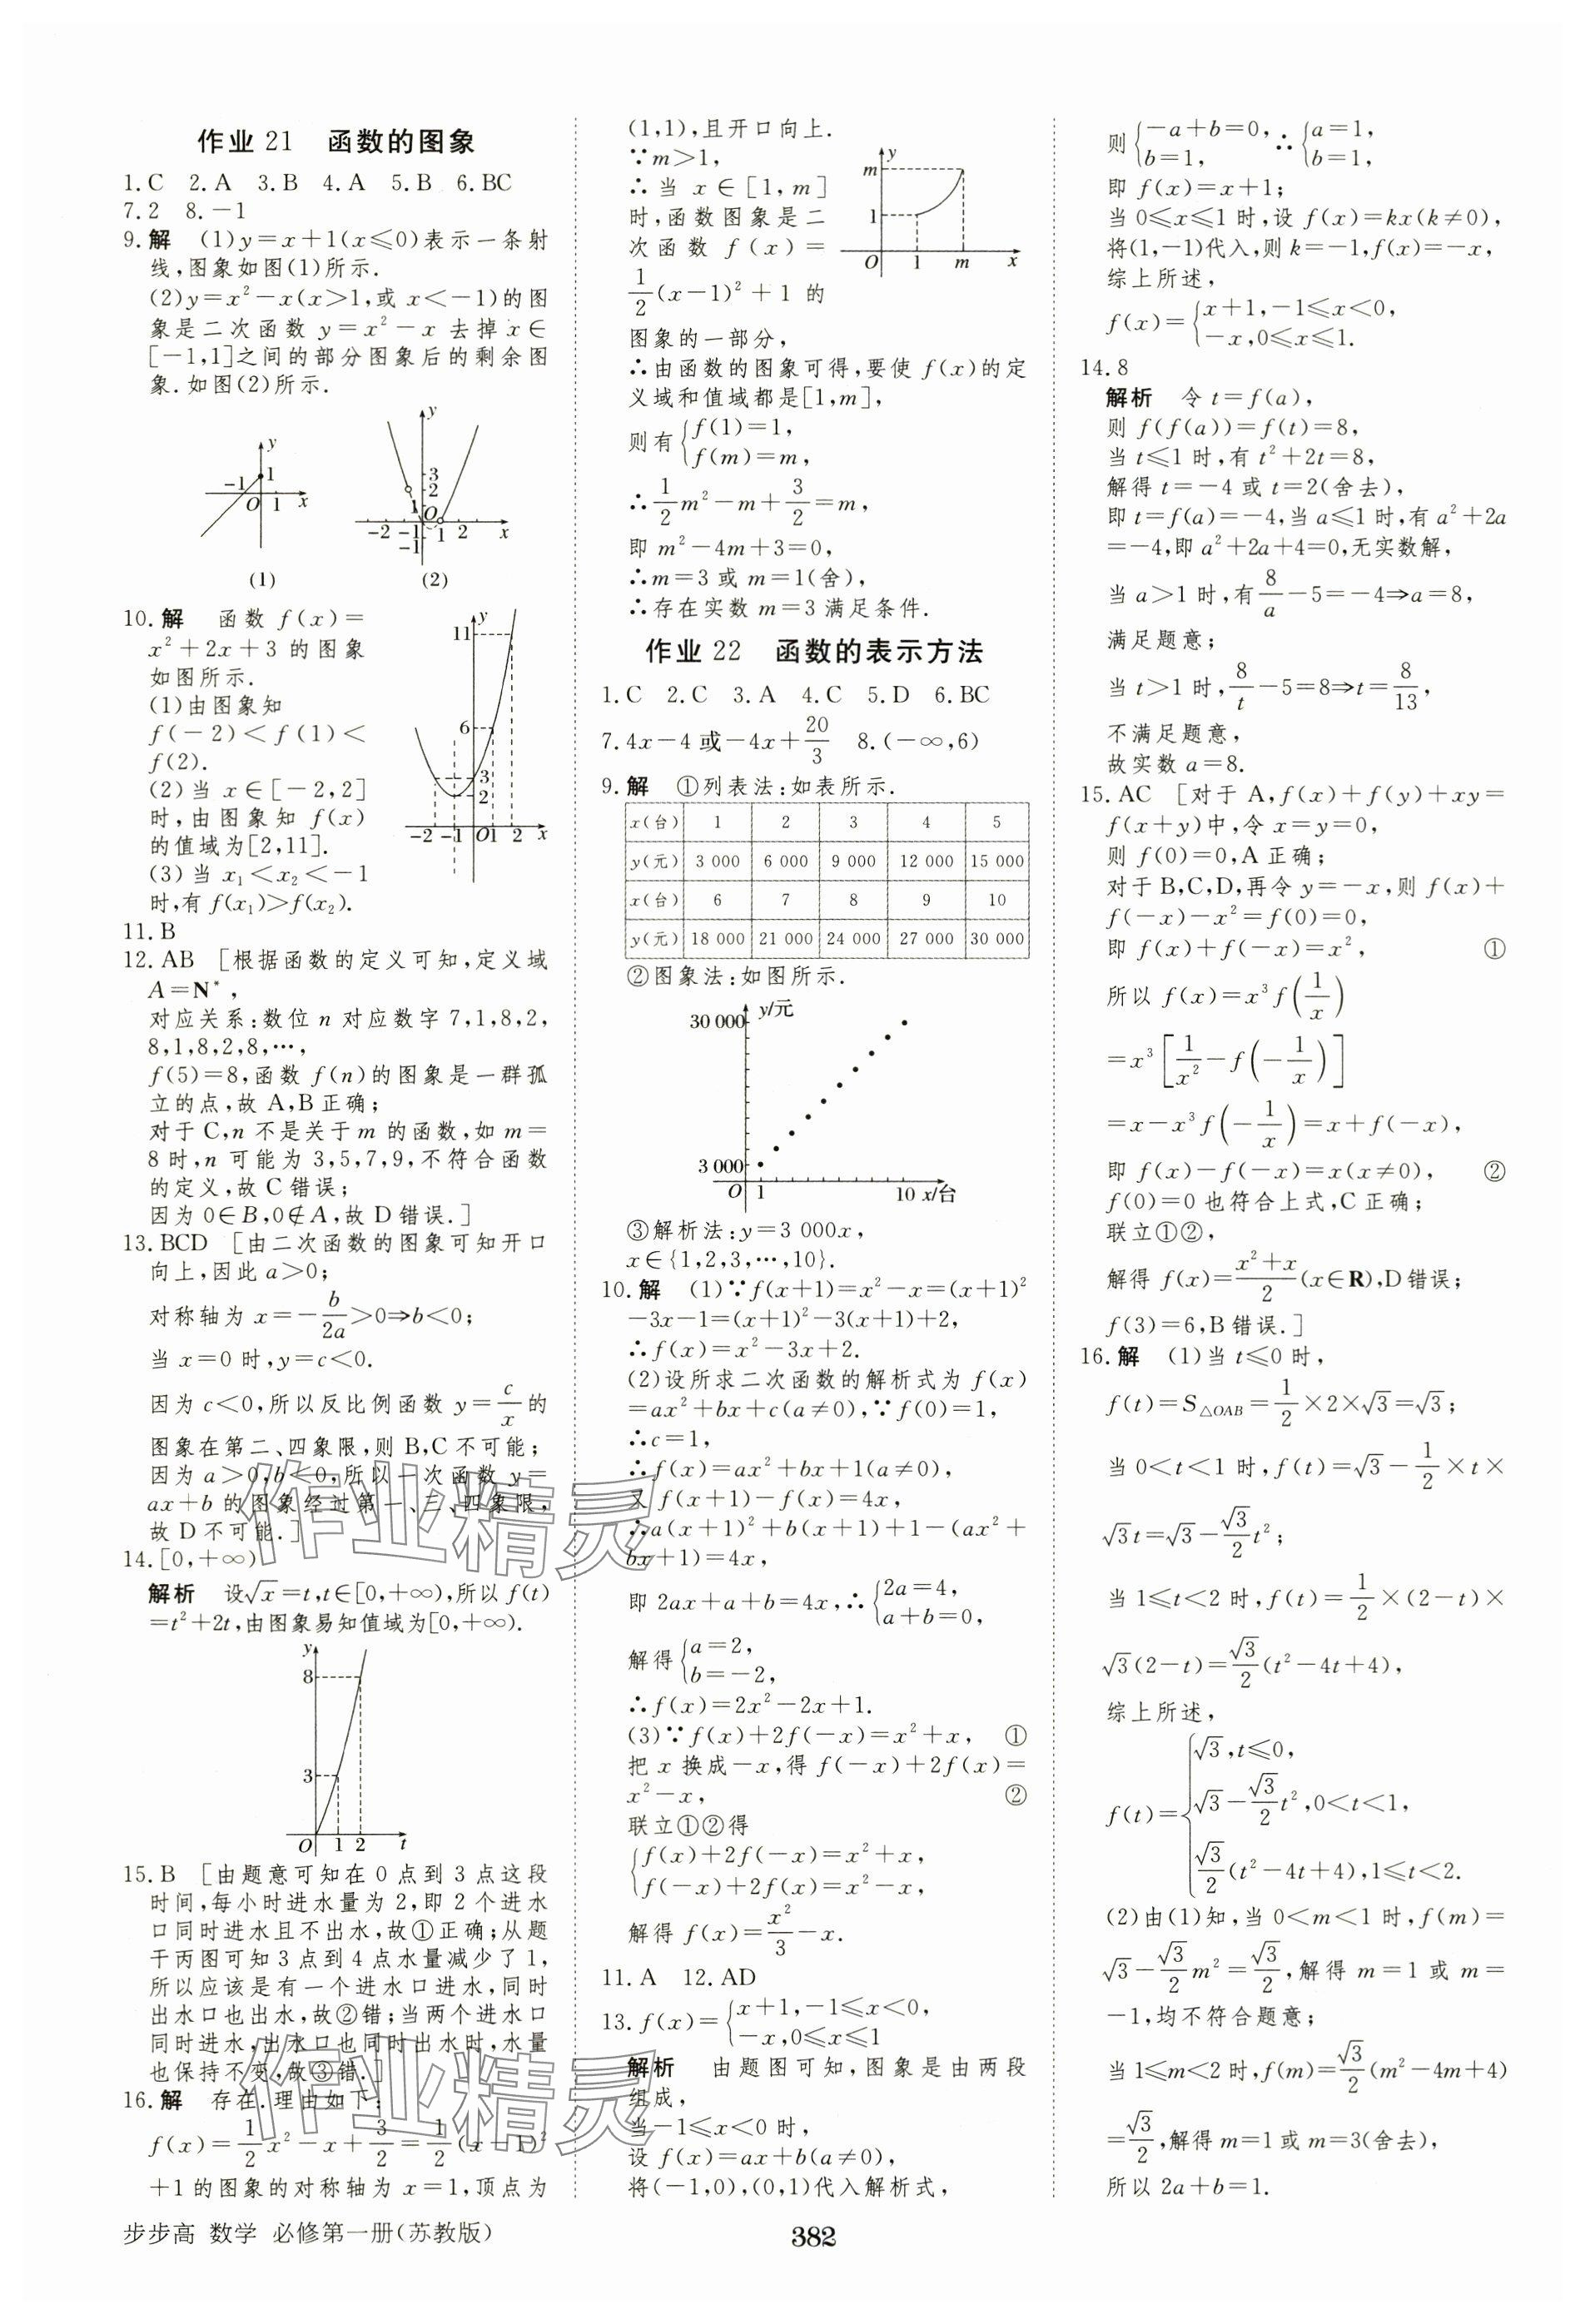 作业 21　函数的图象
1.C　2.A　3.B　4.A　5.B　6.BC
7.2　8.-1
9.解　(1)y=x+1(x≤0)表示一条射
线,图象如图(1)所示.
(2)y=x²-x(x>1,或 x<-1)的图
象是二次函数 y=x²-x 去掉 x∈
[-1,1]之间的部分图象后的剩余图
象.如图(2)所示.
y
1
-1
O 1 x
(1)
y
3
2
1
O
-2 -1 1 2 x
-1
(2)
10.解　函数 f(x)=
x²+2x+3 的图象
如图所示.
(1)由图象知
f(-2)<f(1)<
f(2).
(2)当 x∈[-2,2]
时,由图象知 f(x)
的值域为[2,11].
(3)当 x₁<x₂<-1
时,有 f(x₁)>f(x₂).
y
11
6
3
2
-2 -1 O 1 2 x
11.B
12.AB　[根据函数的定义可知,定义域
A=N*,
对应关系:数位 n 对应数字 7,1,8,2,
8,1,8,2,8,…,
f(5)=8,函数 f(n)的图象是一群孤
立的点,故 A,B 正确;
对于 C,n 不是关于 m 的函数,如 m=
8 时,n 可能为 3,5,7,9,不符合函数
的定义,故 C 错误;
因为 0∈B,0∉A,故 D 错误.]
13.BCD　[由二次函数的图象可知开口
向上,因此 a>0;
对称轴为 x=-b/2a>0⇒b<0;
当 x=0 时,y=c<0.
因为 c<0,所以反比例函数 y=c/x的
图象在第二、四象限,则 B,C 不可能;
因为 a>0,b<0,所以一次函数 y=
ax+b 的图象经过第一、三、四象限,
故 D 不可能.]
14.[0,+∞)
解析　设√x=t,t∈[0,+∞),所以 f(t)
=t²+2t,由图象易知值域为[0,+∞).
y
8
3
O 1 2 t
15.B　[由题意可知在 0 点到 3 点这段
时间,每小时进水量为 2,即 2 个进水
口同时进水且不出水,故①正确;从题
干丙图可知 3 点到 4 点水量减少了 1,
所以应该是有一个进水口进水,同时
出水口也出水,故②错;当两个进水口
同时进水,出水口也同时出水时,水量
也保持不变,故③错.]
16.解　存在.理由如下:
f(x)=1/2x²-x+3/2=1/2(x-1)²
+1 的图象的对称轴为 x=1,顶点为
(1,1),且开口向上.
∵m>1,
∴当 x∈[1,m]
时,函数图象是二
次函数 f(x)=
1/2(x-1)²+1 的
图象的一部分,
y
m
1
O 1 m x
∴由函数的图象可得,要使 f(x)的定
义域和值域都是[1,m],
则有{f(1)=1,
f(m)=m,
∴1/2m²-m+3/2=m,
即 m²-4m+3=0,
∴m=3 或 m=1(舍),
∴存在实数 m=3 满足条件.
作业 22　函数的表示方法
1.C　2.C　3.A　4.C　5.D　6.BC
7.4x-4 或-4x+20/3　8.(-∞,6)
9.解　①列表法:如表所示.
x(台) 1 2 3 4 5
y(元) 3 000 6 000 9 000 12 000 15 000
x(台) 6 7 8 9 10
y(元) 18 000 21 000 24 000 27 000 30 000
②图象法:如图所示.
y/元
30 000
3 000
O 1 10 x/台
③解析法:y=3 000x,
x∈{1,2,3,…,10}.
10.解　(1)∵f(x+1)=x²-x=(x+1)²
-3x-1=(x+1)²-3(x+1)+2,
∴f(x)=x²-3x+2.
(2)设所求二次函数的解析式为 f(x)
=ax²+bx+c(a≠0),∵f(0)=1,
∴c=1,
∴f(x)=ax²+bx+1(a≠0),
又 f(x+1)-f(x)=4x,
∴a(x+1)²+b(x+1)+1-(ax²+
bx+1)=4x,
即 2ax+a+b=4x,∴{2a=4,
a+b=0,
解得{a=2,
b=-2,
∴f(x)=2x²-2x+1.
(3)∵f(x)+2f(-x)=x²+x,　①
把 x 换成-x,得 f(-x)+2f(x)=
x²-x,　②
联立①②得
{f(x)+2f(-x)=x²+x,
f(-x)+2f(x)=x²-x,
解得 f(x)=x²/3-x.
11.A　12.AD
13.f(x)={x+1,-1≤x<0,
-x,0≤x≤1
解析　由题图可知,图象是由两段
组成,
当-1≤x<0 时,
设 f(x)=ax+b(a≠0),
将(-1,0),(0,1)代入解析式,
则{-a+b=0,
b=1,
∴{a=1,
b=1,
即 f(x)=x+1;
当 0≤x≤1 时,设 f(x)=kx(k≠0),
将(1,-1)代入,则 k=-1,f(x)=-x,
综上所述,
f(x)={x+1,-1≤x<0,
-x,0≤x≤1.
14.8
解析　令 t=f(a),
则 f(f(a))=f(t)=8,
当 t≤1 时,有 t²+2t=8,
解得 t=-4 或 t=2(舍去),
即 t=f(a)=-4,当 a≤1 时,有 a²+2a
=-4,即 a²+2a+4=0,无实数解,
当 a>1 时,有8/a-5=-4⇒a=8,
满足题意;
当 t>1 时,8/t-5=8⇒t=8/13,
不满足题意,
故实数 a=8.
15.AC　[对于 A,f(x)+f(y)+xy=
f(x+y)中,令 x=y=0,
则 f(0)=0,A 正确;
对于 B,C,D,再令 y=-x,则 f(x)+
f(-x)-x²=f(0)=0,
即 f(x)+f(-x)=x²,　①
所以 f(x)=x³f(1/x)
=x³[1/x²-f(-1/x)]
=x-x³f(-1/x)=x+f(-x),
即 f(x)-f(-x)=x(x≠0),　②
f(0)=0 也符合上式,C 正确;
联立①②,
解得 f(x)=(x²+x)/2(x∈R),D 错误;
f(3)=6,B 错误.]
16.解　(1)当 t≤0 时,
f(t)=S△OAB=1/2×2×√3=√3;
当 0<t<1 时,f(t)=√3-1/2×t×
√3t=√3-√3/2t²;
当 1≤t<2 时,f(t)=1/2×(2-t)×
√3(2-t)=√3/2(t²-4t+4),
综上所述,
f(t)={√3,t≤0,
√3-√3/2t²,0<t<1,
√3/2(t²-4t+4),1≤t<2.
(2)由(1)知,当 0<m<1 时,f(m)=
√3-√3/2m²=√3/2,解得 m=1 或 m=
-1,均不符合题意;
当 1≤m<2 时,f(m)=√3/2(m²-4m+4)
=√3/2,解得 m=1 或 m=3(舍去),
所以 2a+b=1.
作业精灵
作业精灵
步步高 数学 必修第一册(苏教版)
382